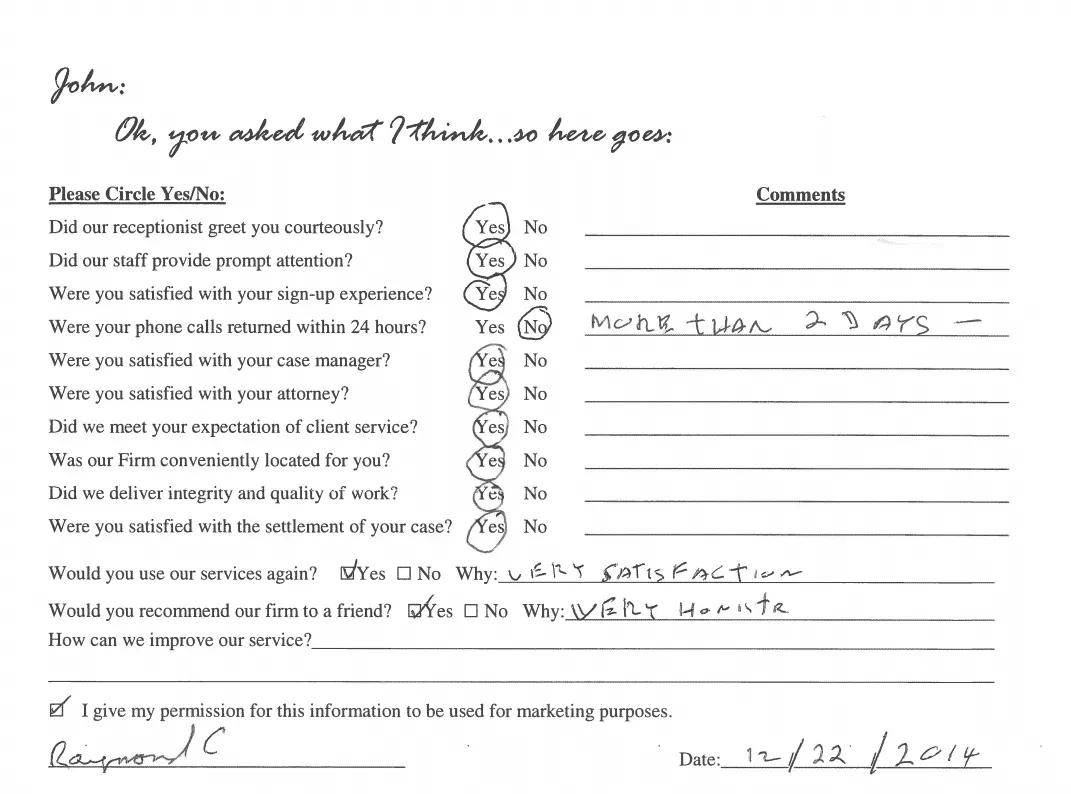 John:
Ok, you asked what I think...so here goes:
Please Circle Yes/No: Comments
Did our receptionist greet you courteously? Yes No
Did our staff provide prompt attention? Yes No
Were you satisfied with your sign-up experience? Yes No
Were your phone calls returned within 24 hours? Yes No MORE THAN 2 DAYS —
Were you satisfied with your case manager? Yes No
Were you satisfied with your attorney? Yes No
Did we meet your expectation of client service? Yes No
Was our Firm conveniently located for you? Yes No
Did we deliver integrity and quality of work? Yes No
Were you satisfied with the settlement of your case? Yes No
Would you use our services again? ☑Yes ☐ No Why: VERY SATISFACTION
Would you recommend our firm to a friend? ☑Yes ☐ No Why: VERY
How can we improve our service?
☑ I give my permission for this information to be used for marketing purposes.
Raymond C Date: 12/22/2014